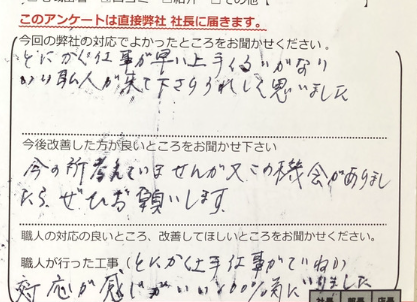 このアンケートは直接弊社 社長に届きます。
今回の弊社の対応でよかったところをお聞かせください。
とにかく仕事が早い上手
職人が来て下さりうれしく思いました
今後改善した方が良いところをお聞かせ下さい
今の所考えていませんが又この機会がありまし
たら、ぜひお願いします。
職人の対応の良いところ、改善してほしいところをお聞かせください。
職人が行った工事(とにかく上手仕事がていねい
対応が感じがいい
社長 部長 店長